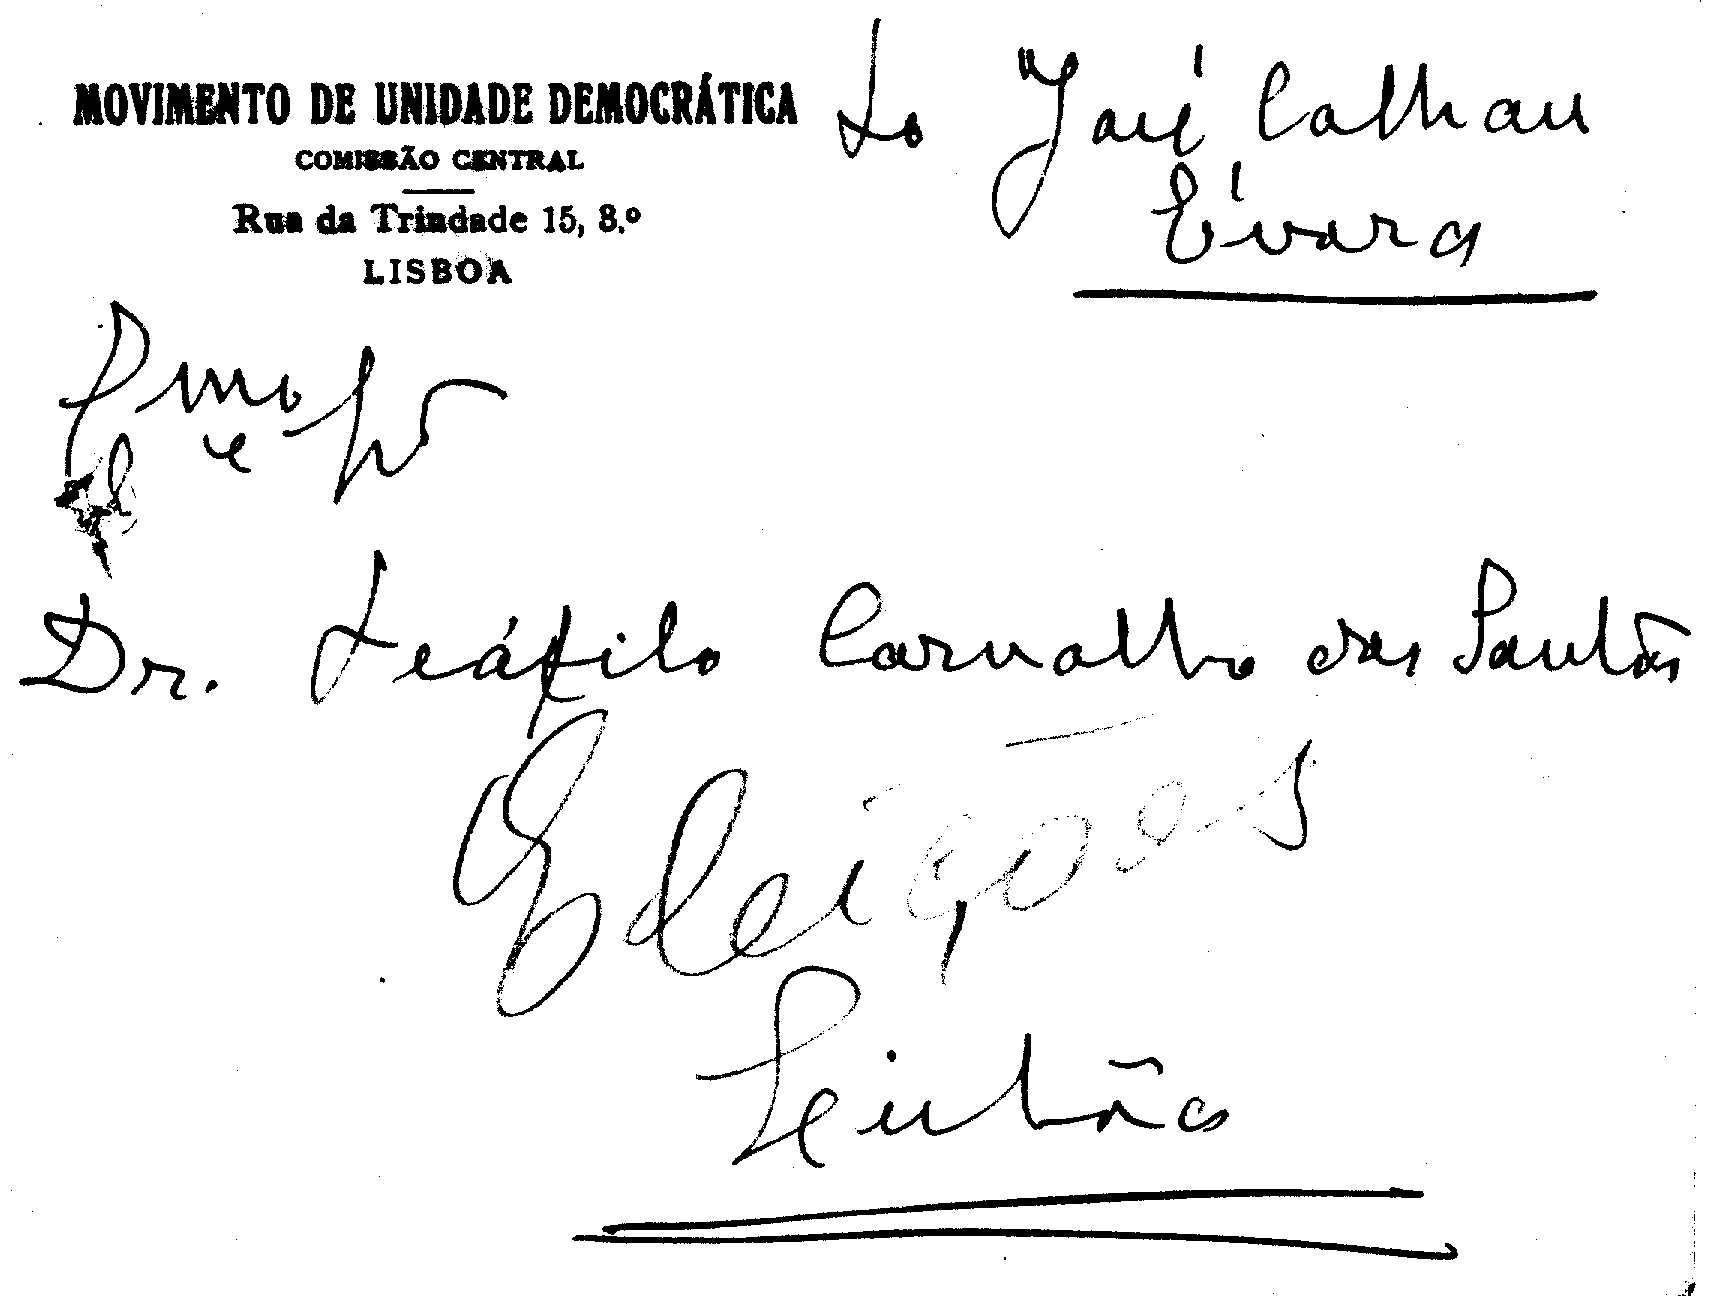 MOVIMENTO DE UNIDADE DEMOCRÁTICA
COMISSÃO CENTRAL
Rua da Trindade 15, 8.º
LISBOA
José Calhau
Évora
Dr. Teófilo Carvalho dos Santos
Eleições
Leitão